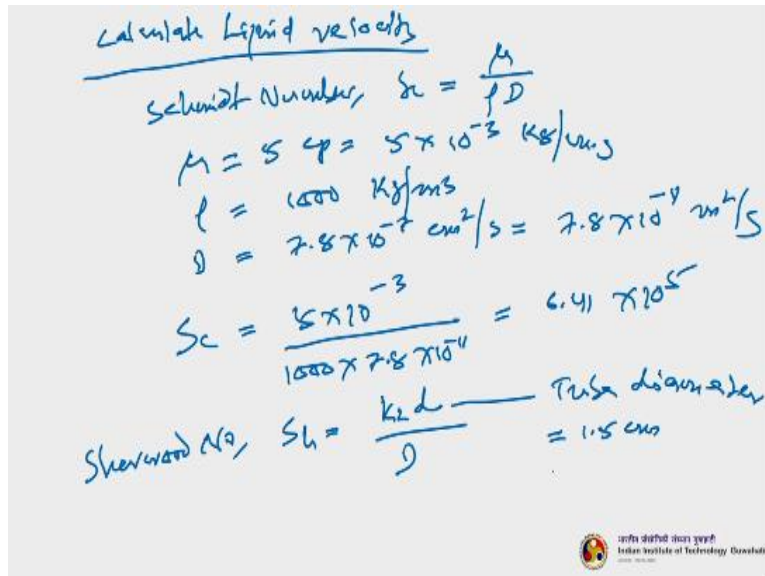 Calculate Liquid velocity
Schmidt Number, Sc = μ / ρD
μ = 5 cp = 5×10⁻³ kg/m.s
ρ = 1000 kg/m3
D = 7.8×10⁻⁷ cm²/s = 7.8×10⁻¹¹ m²/s
Sc = 5×10⁻³ / 1000×7.8×10⁻¹¹ = 6.41×10⁵
Sherwood No, Sh = kL d / D — Tube diameter
= 1.5 cm
Indian Institute of Technology Guwahati